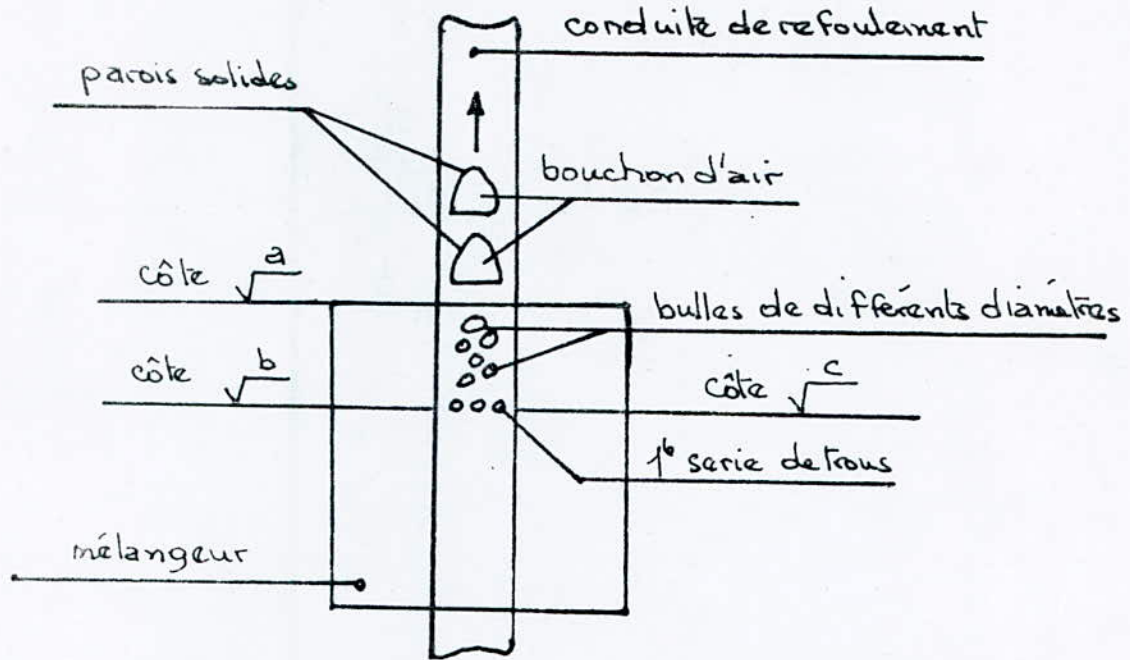 conduite de refoulement
parois solides
bouchon d'air
côte √a
bulles de différents diamètres
côte √b
côte √c
serie de trous
mélangeur